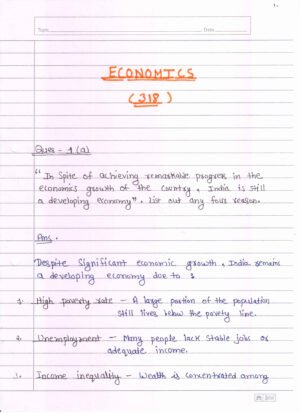 1.
Topic
Date
ECONOMICS
(318)
Ques - 1 (a)
"In Spite of achieving remarkable progress in the
economics growth of the country, India is still
a developing economy". List out any four reason.
Ans.
Despite significant economic growth, India remains
a developing economy due to :
1. High poverty rate - A large portion of the population
still lives below the poverty line.
2. Unemployment - Many people lack stable jobs or
adequate income.
3. Income inequality - Wealth is concentrated among